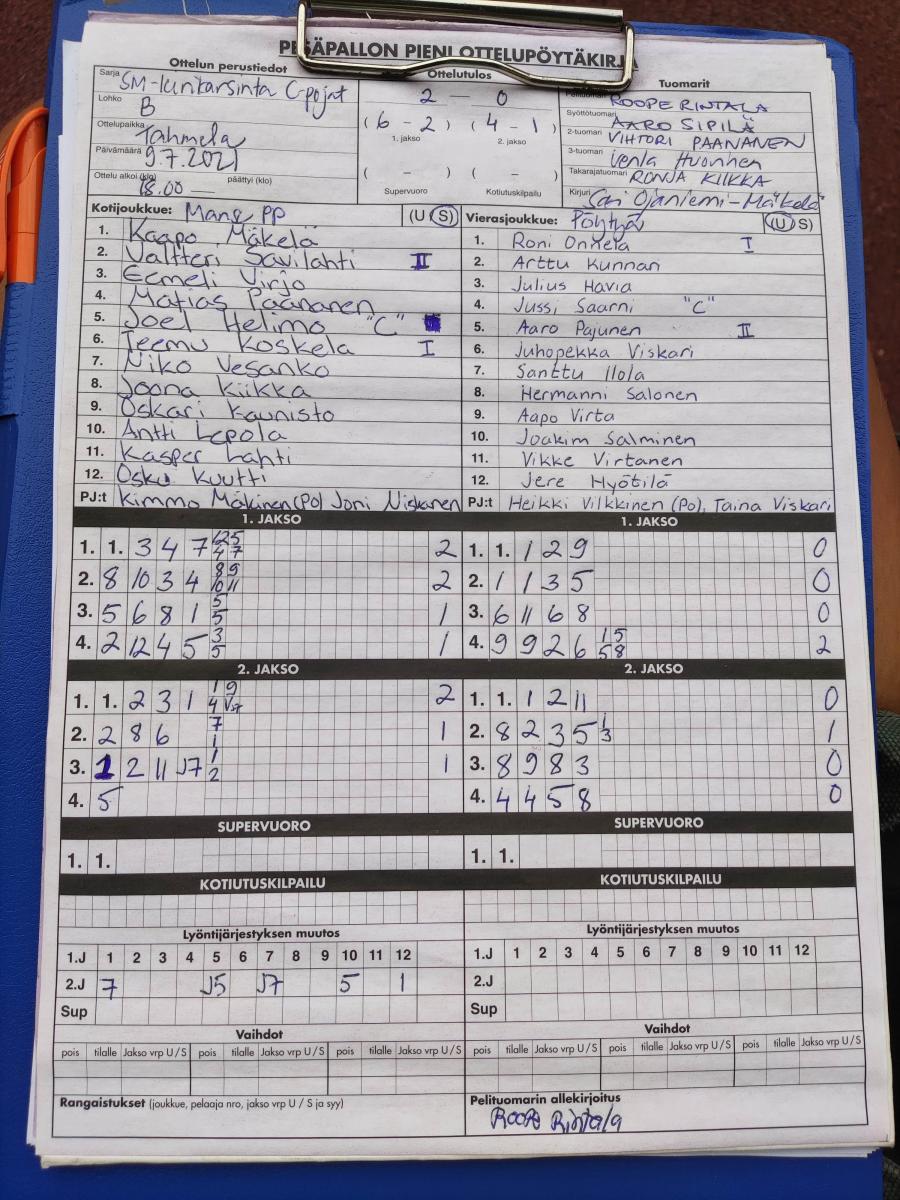 PESÄPALLON PIENI OTTELUPÖYTÄKIRJA
Ottelun perustiedot
Sarja SM-lenkkarsinta C-pojat
Lohko B
Ottelupaikka Tahmela
Päivämäärä 9.7.2021
Ottelu alkoi (klo) 18.00 — päättyi (klo)
Ottelutulos
2 — 0
( 6 - 2 ) ( 4 - 1 )
1. jakso 2. jakso
( - ) ( - )
Supervuoro Kotiutuskilpailu
Tuomarit
ROOPE RINTALA
Syöttötuomari AARO SIPILÄ
2-tuomari VIHTORI PAANANEN
3-tuomari Venla Huovinen
Takarajatuomari RONJA KIIKKA
Kirjuri Sari Ojaniemi-Mäkelä
Kotijoukkue: Manse PP (U S)
1. Kaapo Mäkelä
2. Valtteri Savilahti II
3. Eemeli Virjo
4. Matias Paananen
5. Joel Helimo "C"
6. Teemu Koskela I
7. Niko Vesanko
8. Joona Kiikka
9. Oskari Kaunisto
10. Antti Lepola
11. Kasper Lahti
12. Osku Kuutti
PJ:t Kimmo Mäkinen (Po) Joni Niskanen
Vierasjoukkue: Pöytyä (U S)
1. Roni Onnela I
2. Arttu Kunnari
3. Julius Havia
4. Jussi Saarni "C"
5. Aaro Pajunen II
6. Juhopekka Viskari
7. Santtu Ilola
8. Hermanni Salonen
9. Aapo Virta
10. Joakim Salminen
11. Vikke Virtanen
12. Jere Hyötilä
PJ:t Heikki Vilkkinen (Po), Taina Viskari
1. JAKSO
1. 1. 3 4 7 2
2. 8 10 3 4 8 9 10 11 2
3. 5 6 8 1 5 5 1
4. 2 12 4 5 3 5 1
1. JAKSO
1. 1. 1 2 9 0
2. 1 1 3 5 0
3. 6 11 6 8 0
4. 9 9 2 6 1 5 5 8 2
2. JAKSO
1. 1. 2 3 1 1 9 4 2
2. 2 8 6 7 1 1
3. 1 2 11 J7 1 2 1
4. 5
2. JAKSO
1. 1. 1 2 11 0
2. 8 2 3 5 1 3 1
3. 8 9 8 3 0
4. 4 4 5 8 0
SUPERVUORO
1. 1.
SUPERVUORO
1. 1.
KOTIUTUSKILPAILU
KOTIUTUSKILPAILU
Lyöntijärjestyksen muutos
1.J 1 2 3 4 5 6 7 8 9 10 11 12
2.J 7 J5 J7 5 1
Sup
Lyöntijärjestyksen muutos
1.J 1 2 3 4 5 6 7 8 9 10 11 12
2.J
Sup
Vaihdot
pois tilalle Jakso vrp U / S pois tilalle Jakso vrp U / S pois tilalle Jakso vrp U / S
Vaihdot
pois tilalle Jakso vrp U / S pois tilalle Jakso vrp U / S pois tilalle Jakso vrp U / S
Rangaistukset (joukkue, pelaaja nro, jakso vrp U / S ja syy)
Pelituomarin allekirjoitus
Roope Rintala